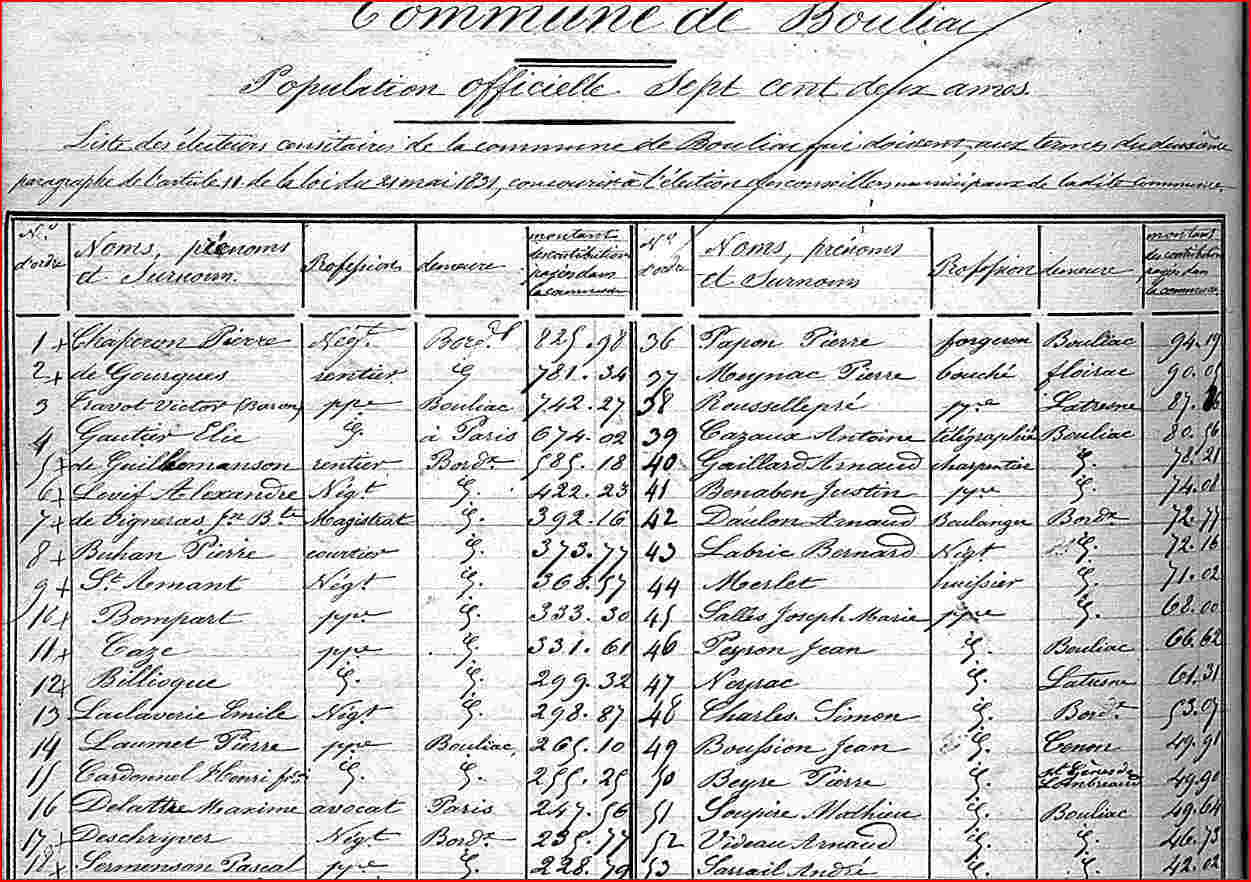 Commune de Bouliac
Population officielle Sept cent deux ames
Liste des électeurs censitaires de la commune de Bouliac qui doivent, aux termes du deuxième
paragraphe de l'article 11 de la loi du 21 mai 1831, concourir à l'élection des conseillers municipaux de la dite commune.
N.o d'ordre Noms, prénoms et Surnom. Profession demeure montant des contributions payées dans la commune N.o d'ordre Noms, prénoms et Surnoms Profession demeure montant des contributions payées dans la commune
1 + Chaperon Pierre Négt. Bord.x 825. 98 36 Papon Pierre forgeron Bouliac 94. 19
2 + de Gourgues rentier id. 781. 34 37 Meynac Pierre bouché floirac 90. 05
3 Travot Victor (Baron) ppre Bouliac 742. 27 38 Roussellepré ppre Latresne 87.
4 Gautier Elie id. à Paris 674. 02 39 Cazaux Antoine télégraphié Bouliac 80. 56
5 + de rentier Bordx 585. 18 40 Gaillard Arnaud charpentier id. 78. 21
6 + Alexandre Négt. id. 422. 23 41 Benaben Justin ppre id. 74. 01
7 + de Vigneras Jn Bte Magistrat id. 392. 16 42 Daulon Arnaud Boulanger Bordx 72. 77
8 + Buhan Pierre courtier id. 373. 77 43 Labric Bernard Négt id. 72. 16
9 + St Amant Négt id. 368. 57 44 Merlet huissier id. 71. 02
10 + Bompart ppre id. 333. 30 45 Salles Joseph Marie ppre id. 68. 00
11 + Caze ppre id. 331. 61 46 Peyron Jean id. Bouliac 66. 62
12 + Billioque id. id. 299. 32 47 Neyrac id. Latresne 61. 31
13 Laclaverie Emile Négt id. 298. 87 48 Charles Simon id. Bordx 53. 07
14 Laumet Pierre ppre Bouliac 265. 10 49 Boussion Jean id. Cenon 49. 91
15 Cardonnel Henri id. id. 255. 25 50 Beyre Pierre id. St Gènes de Lombreaud 49. 90
16 Delattre Maxime avocat Paris 247. 56 51 Soupire Mathieu id. Bouliac 49. 64
17 + Deschryver Négt Bordx 235. 77 52 Videau Arnaud id. id. 46. 73
18 + Sermenson Pascal ppre id. 228. 79 53 Sarrail André id. id. 42. 02